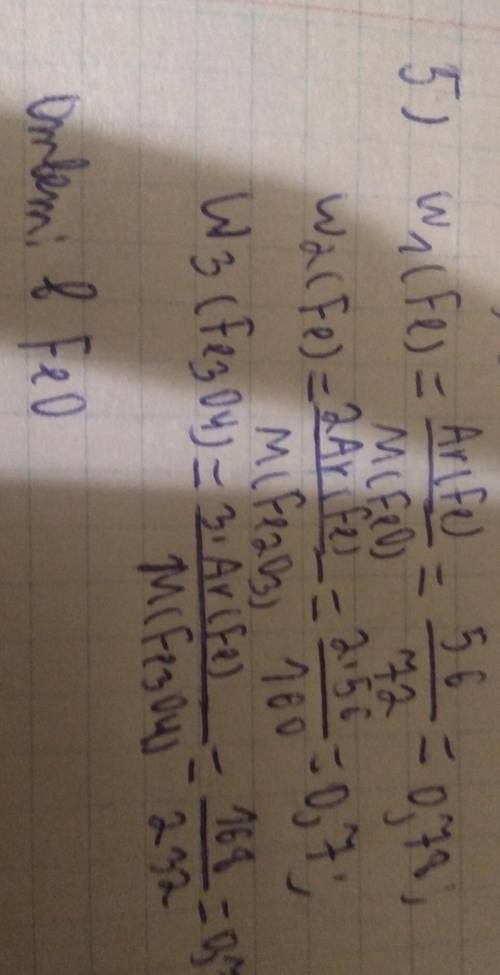 5) W₁(Fe) = Ar(Fe) / M(FeO) = 56 / 72 = 0,78;
W₂(Fe) = 2Ar(Fe) / M(Fe₂O₃) = 2·56 / 160 = 0,7;
W₃(Fe₃O₄) = 3·Ar(Fe) / M(Fe₃O₄) = 168 / 232 =
Ответ: в FeO